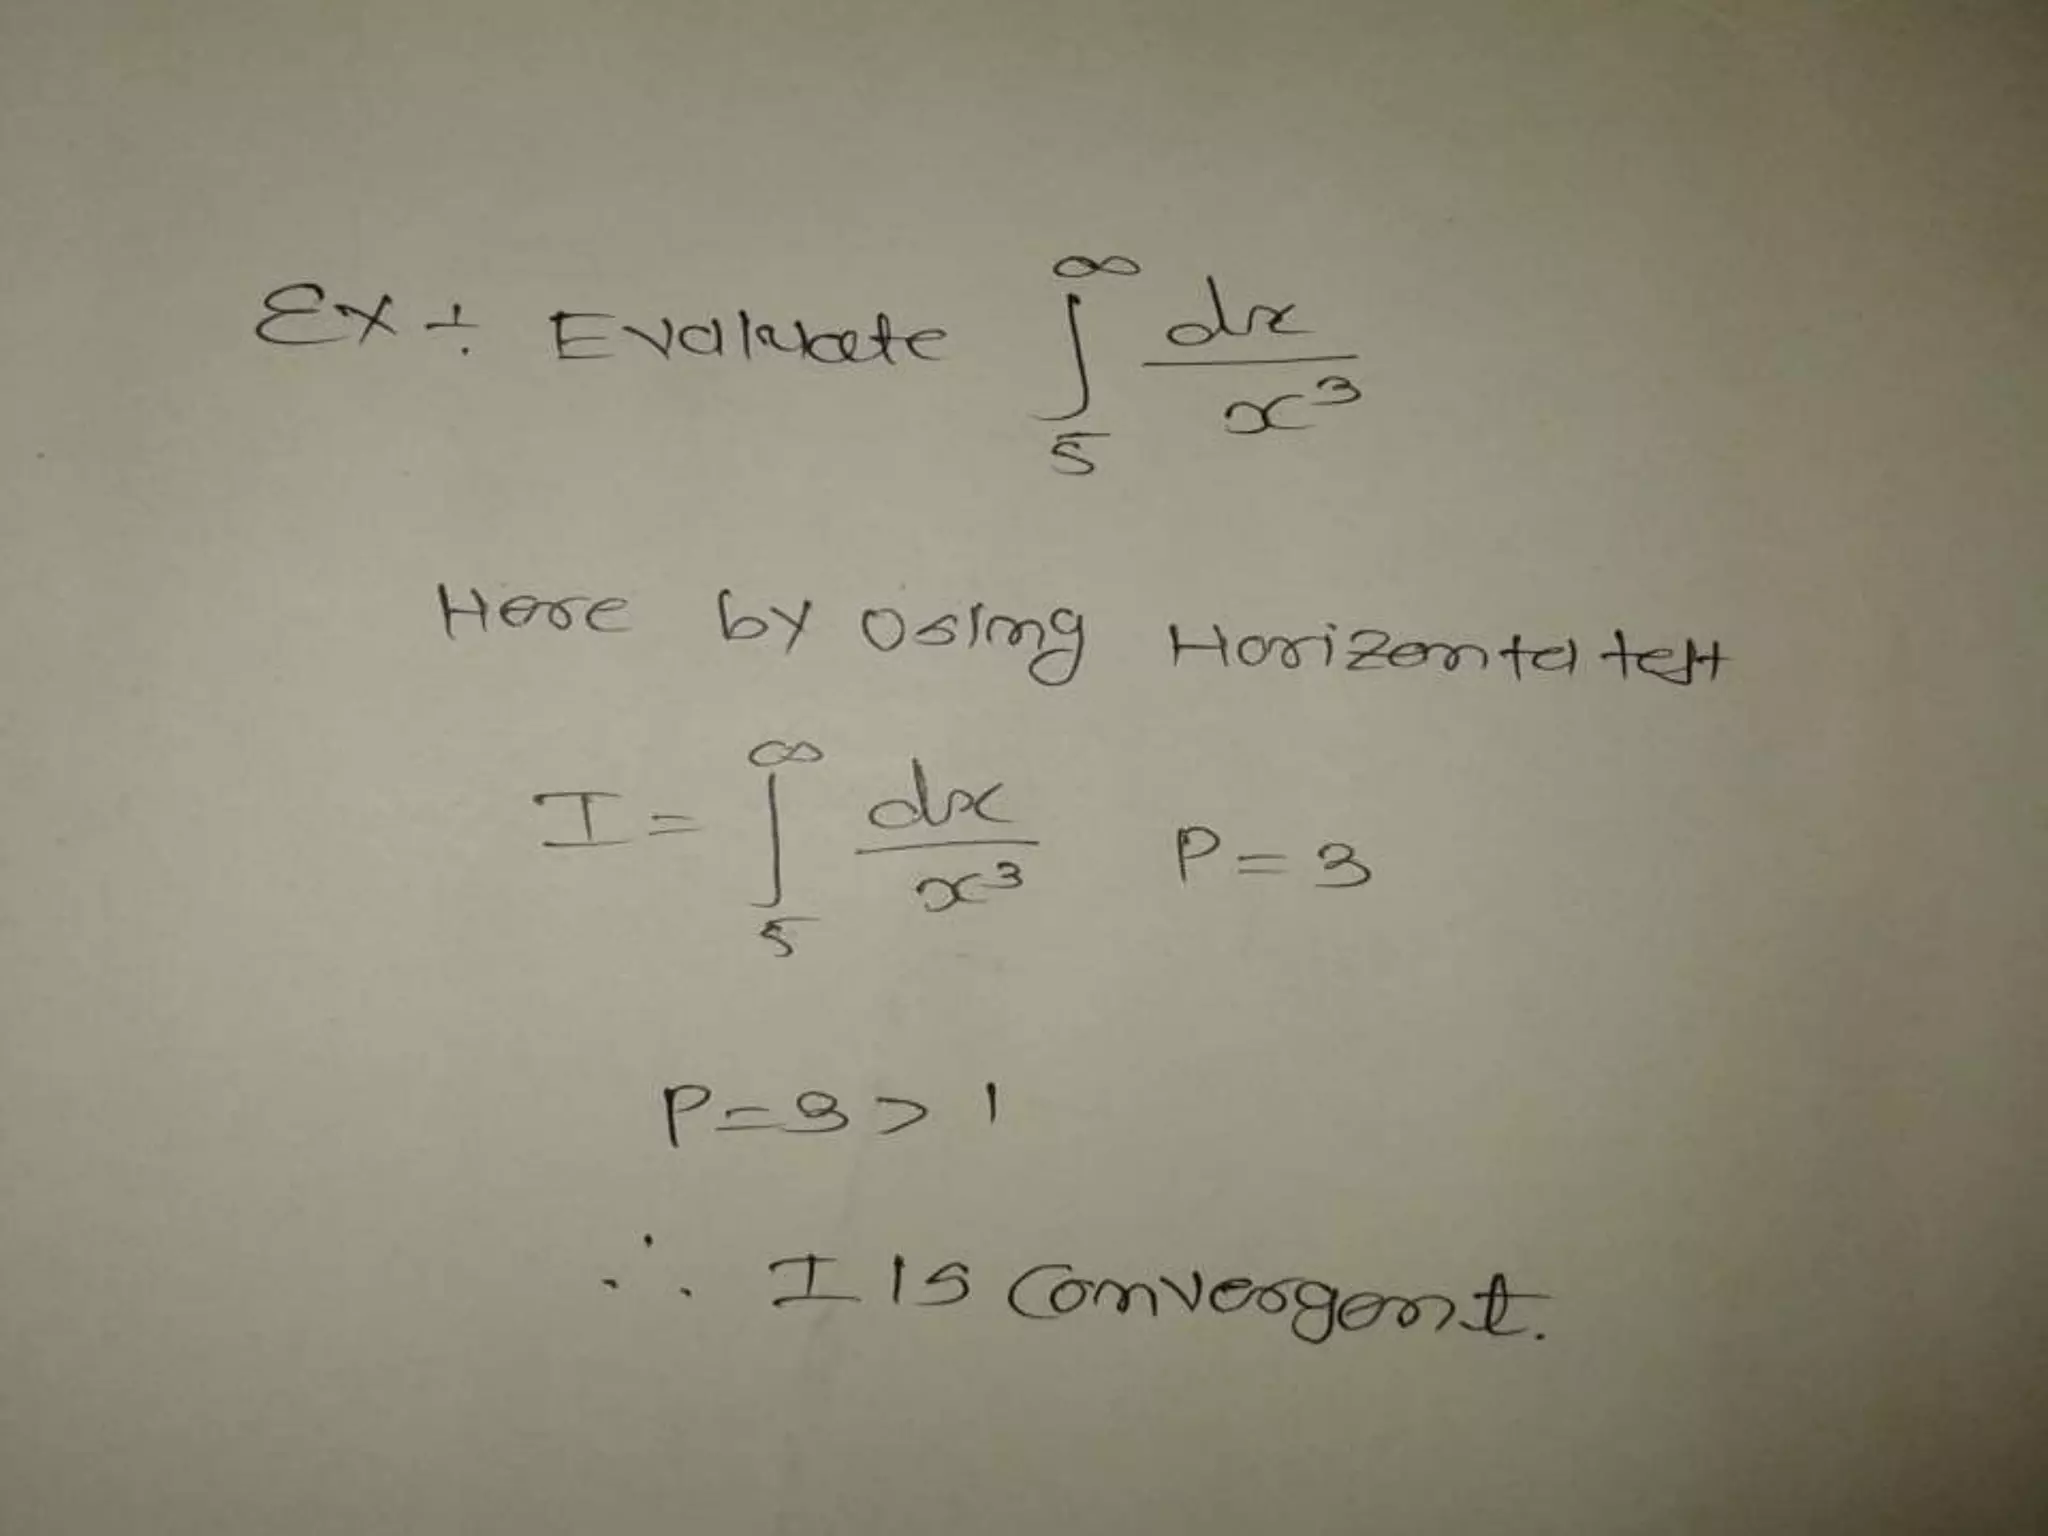 Ex :- Evaluate ∫₅^∞ dx/x³
Here by Using Horizontal test
I = ∫₅^∞ dx/x³ P = 3
P = 3 > 1
∴ I is Convergent.